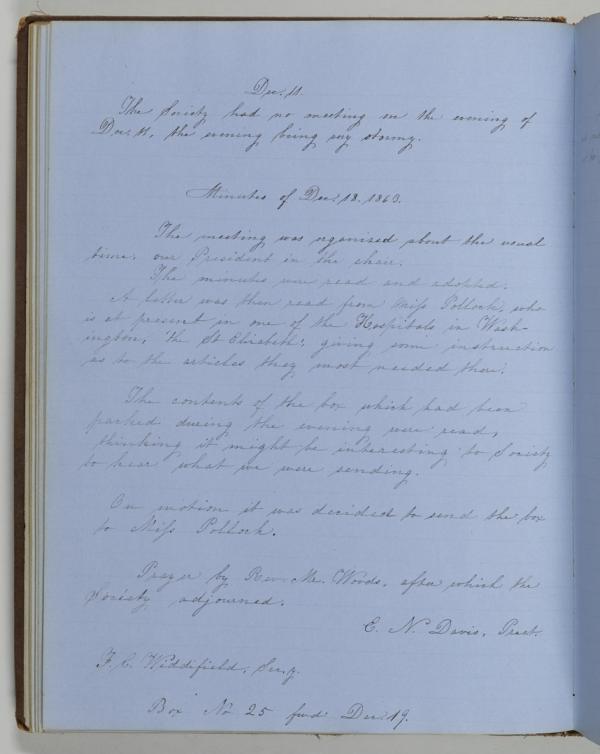 Dec. 11.
The Society had no meeting on the evening of
Dec. 11, the evening being very stormy.
Minutes of Dec. 18. 1863.
The meeting was organised about the usual
time. our President in the chair.
The minutes were read and adopted.
A letter was then read from Miss Pollock, who
is at present in one of the Hospitals in Wash-
ington, "the St Elizabeth", giving some instruction
as to the articles they most needed there.
The contents of the box which had been
packed during the evening were read,
thinking it might be interesting to Society
to hear what we were sending.
On motion it was decided to send the box
to Miss Pollock.
Prayer by Rev. Mr. Woods, after which the
Society adjourned.
E. N. Davis, Prest.
F. C. Widdifield, Sec.y.
Box No 25 fwd Dec. 19.